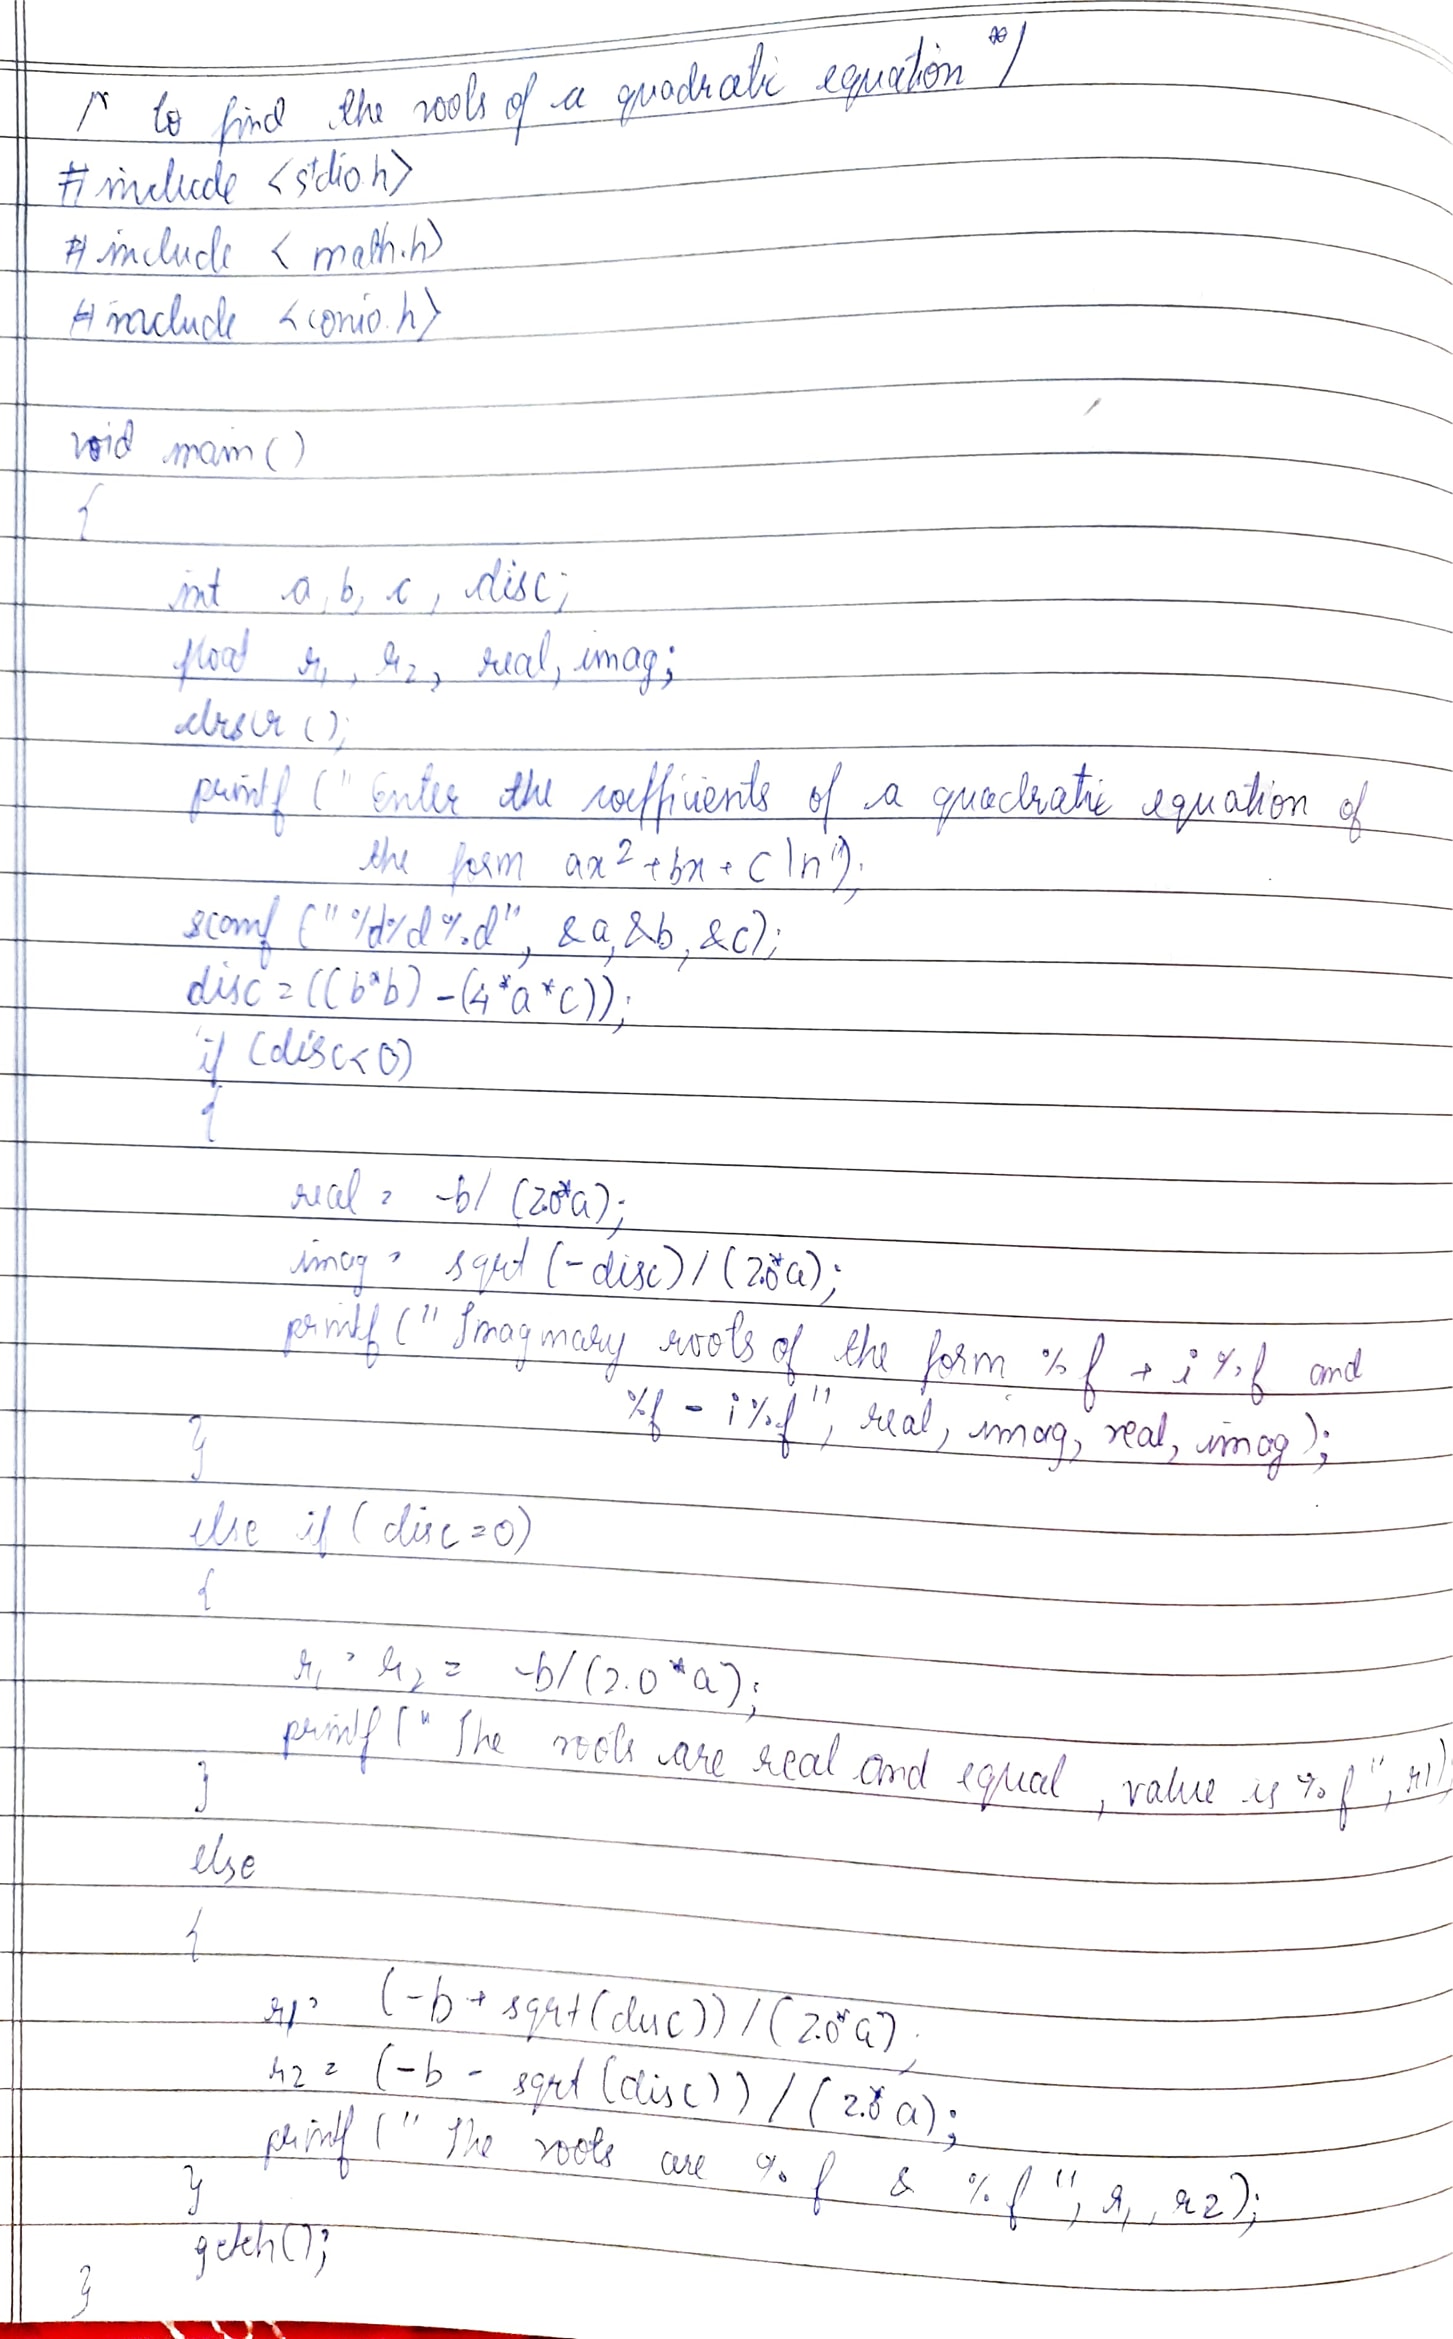 /* to find the roots of a quadratic equation */
#include <stdio.h>
#include < math.h>
#include <conio.h>
void main()
{
int a, b, c, disc;
float r1, r2, real, imag;
clrscr();
printf (" Enter the coefficients of a quadratic equation of
the form ax² + bx + c \n");
scanf ("%d%d%d", &a, &b, &c);
disc = ((b*b) - (4*a*c));
if (disc<0)
{
real = -b/ (2.0*a);
imag = sqrt (-disc) / (2.0*a);
printf (" Imaginary roots of the form %f + i %f and
%f - i%f", real, imag, real, imag);
}
else if (disc=0)
{
r1 = r2 = -b/(2.0*a);
printf (" The roots are real and equal, value is %f", r1);
}
else
{
r1= (-b + sqrt(disc)) / (2.0*a);
r2 = (-b - sqrt (disc)) / (2.0*a);
printf (" The roots are %f & %f", r1, r2);
}
getch();
}